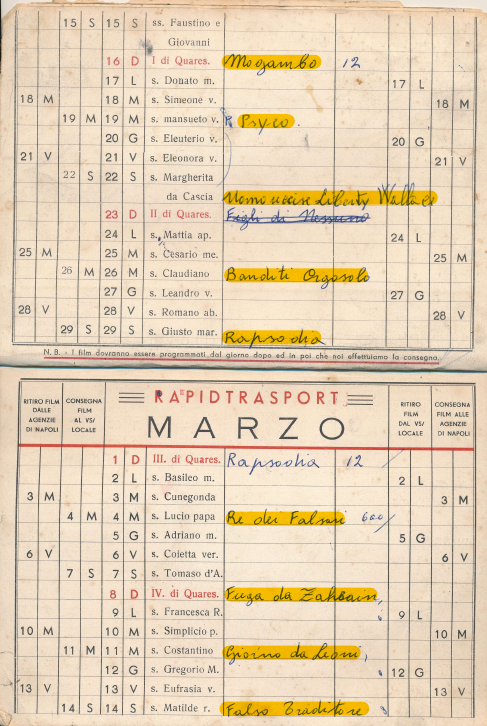 15 S 15 S ss. Faustino e
Giovanni
16 D I di Quares. Mogambo 12
17 L s. Donato m. 17 L
18 M 18 M s. Simeone v. 18 M
19 M 19 M s. mansueto v. Psyco.
20 G s. Eleuterio v. 20 G
21 V 21 V s. Eleonora v. 21 V
22 S 22 S s. Margherita
da Cascia
uccise Liberty Wallace
23 D II di Quares. Figli di Nessuno
24 L s. Mattia ap. 24 L
25 M 25 M s. Cesario me. 25 M
26 M 26 M s. Claudiano Banditi Orgosolo
27 G s. Leandro v. 27 G
28 V 28 V s. Romano ab. 28 V
29 S 29 S s. Giusto mar. Rapsodia
N. B. - I film dovranno essere programmati dal giorno dopo ed in poi che noi effettuiamo la consegna.
RAPIDTRASPORT
MARZO
RITIRO FILM DALLE AGENZIE DI NAPOLI
CONSEGNA FILM AL VS/ LOCALE
RITIRO FILM DAL VS/ LOCALE
CONSEGNA FILM ALLE AGENZIE DI NAPOLI
1 D III. di Quares. Rapsodia 12
2 L s. Basileo m. 2 L
3 M 3 M s. Cunegonda 3 M
4 M 4 M s. Lucio papa Re dei Falsari 600/
5 G s. Adriano m. 5 G
6 V 6 V s. Coietta ver. 6 V
7 S 7 S s. Tomaso d'A.
8 D IV. di Quares. Fuga da Zahrain,
9 L s. Francesca R. 9 L
10 M 10 M s. Simplicio p. 10 M
11 M 11 M s. Costantino Giorno da Leoni,
12 G s. Gregorio M. 12 G
13 V 13 V s. Eufrasia v. 13 V
14 S 14 S s. Matilde r. Falso Traditore